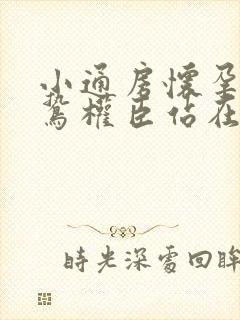 小通房懷孕
鷙權臣佔在
時光深處回眸